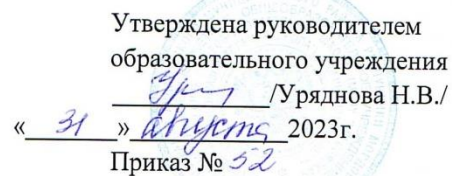 Утверждена руководителем
образовательного учреждения
/Уряднова Н.В./
« 31 » августа 2023г.
Приказ № 52